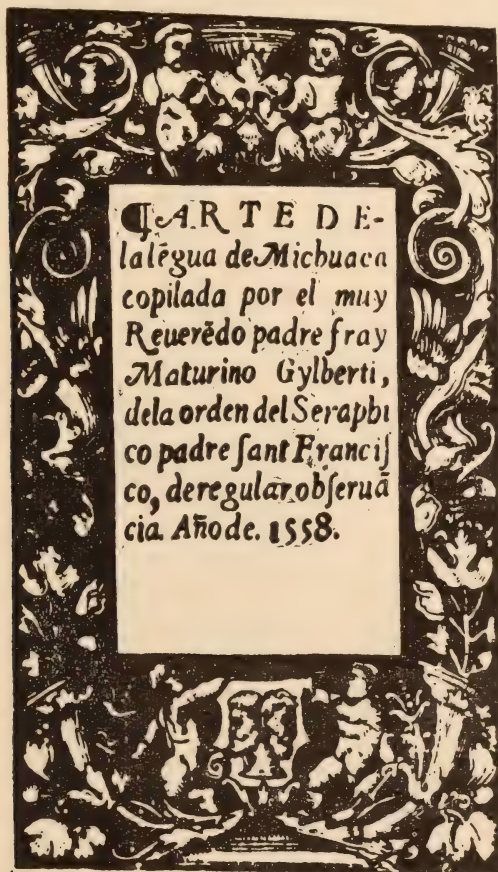 ¶ARTE DE-
lalẽgua deMichuaca
copilada por el muy
Reuerẽdo padre fray
Maturino Gylberti,
dela orden del Seraphi
co padre ſant Franciſ
co, de regular obſeruã
cia. Año de. 1558.